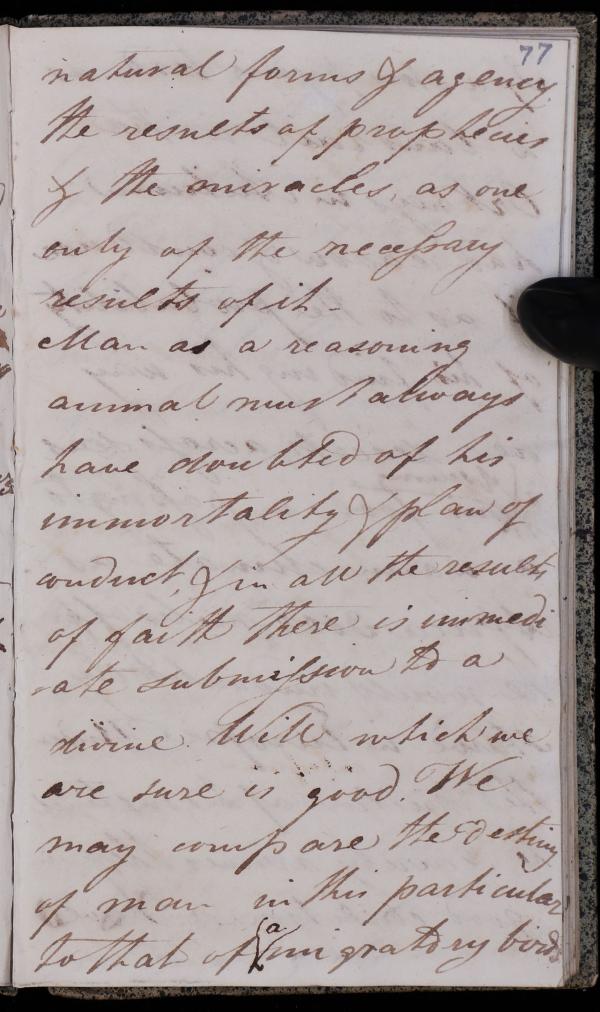 77
natural forms & agency
the results of prophecies
& the miracles, as one
only of the necessary
results of it -
Man as a reasoning
animal must always
have doubted of his
immortality & plan of
conduct, & in all the results
of faith there is immedi
-ate submission to a
divine Will which we
are sure is good. We
may compare the destiny
of man in this particular
to that of a migratory bird